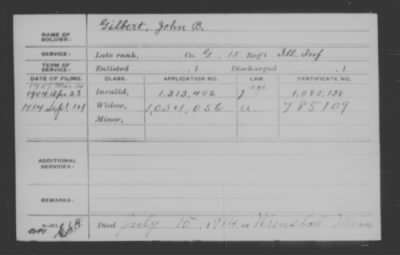 NAME OF SOLDIER: Gilbert, John B.
SERVICE: Late rank, Co. G, 15 Reg't Ill. Inf
TERM OF SERVICE: Enlisted , 1 Discharged , 1
DATE OF FILING. CLASS. APPLICATION NO. LAW. CERTIFICATE NO.
1904 Apr 23 Invalid, 1,313,402
1914 Sept Widow, 1,034,056 785109
Minor,
ADDITIONAL SERVICES:
REMARKS:
Died July 15, 1914, at